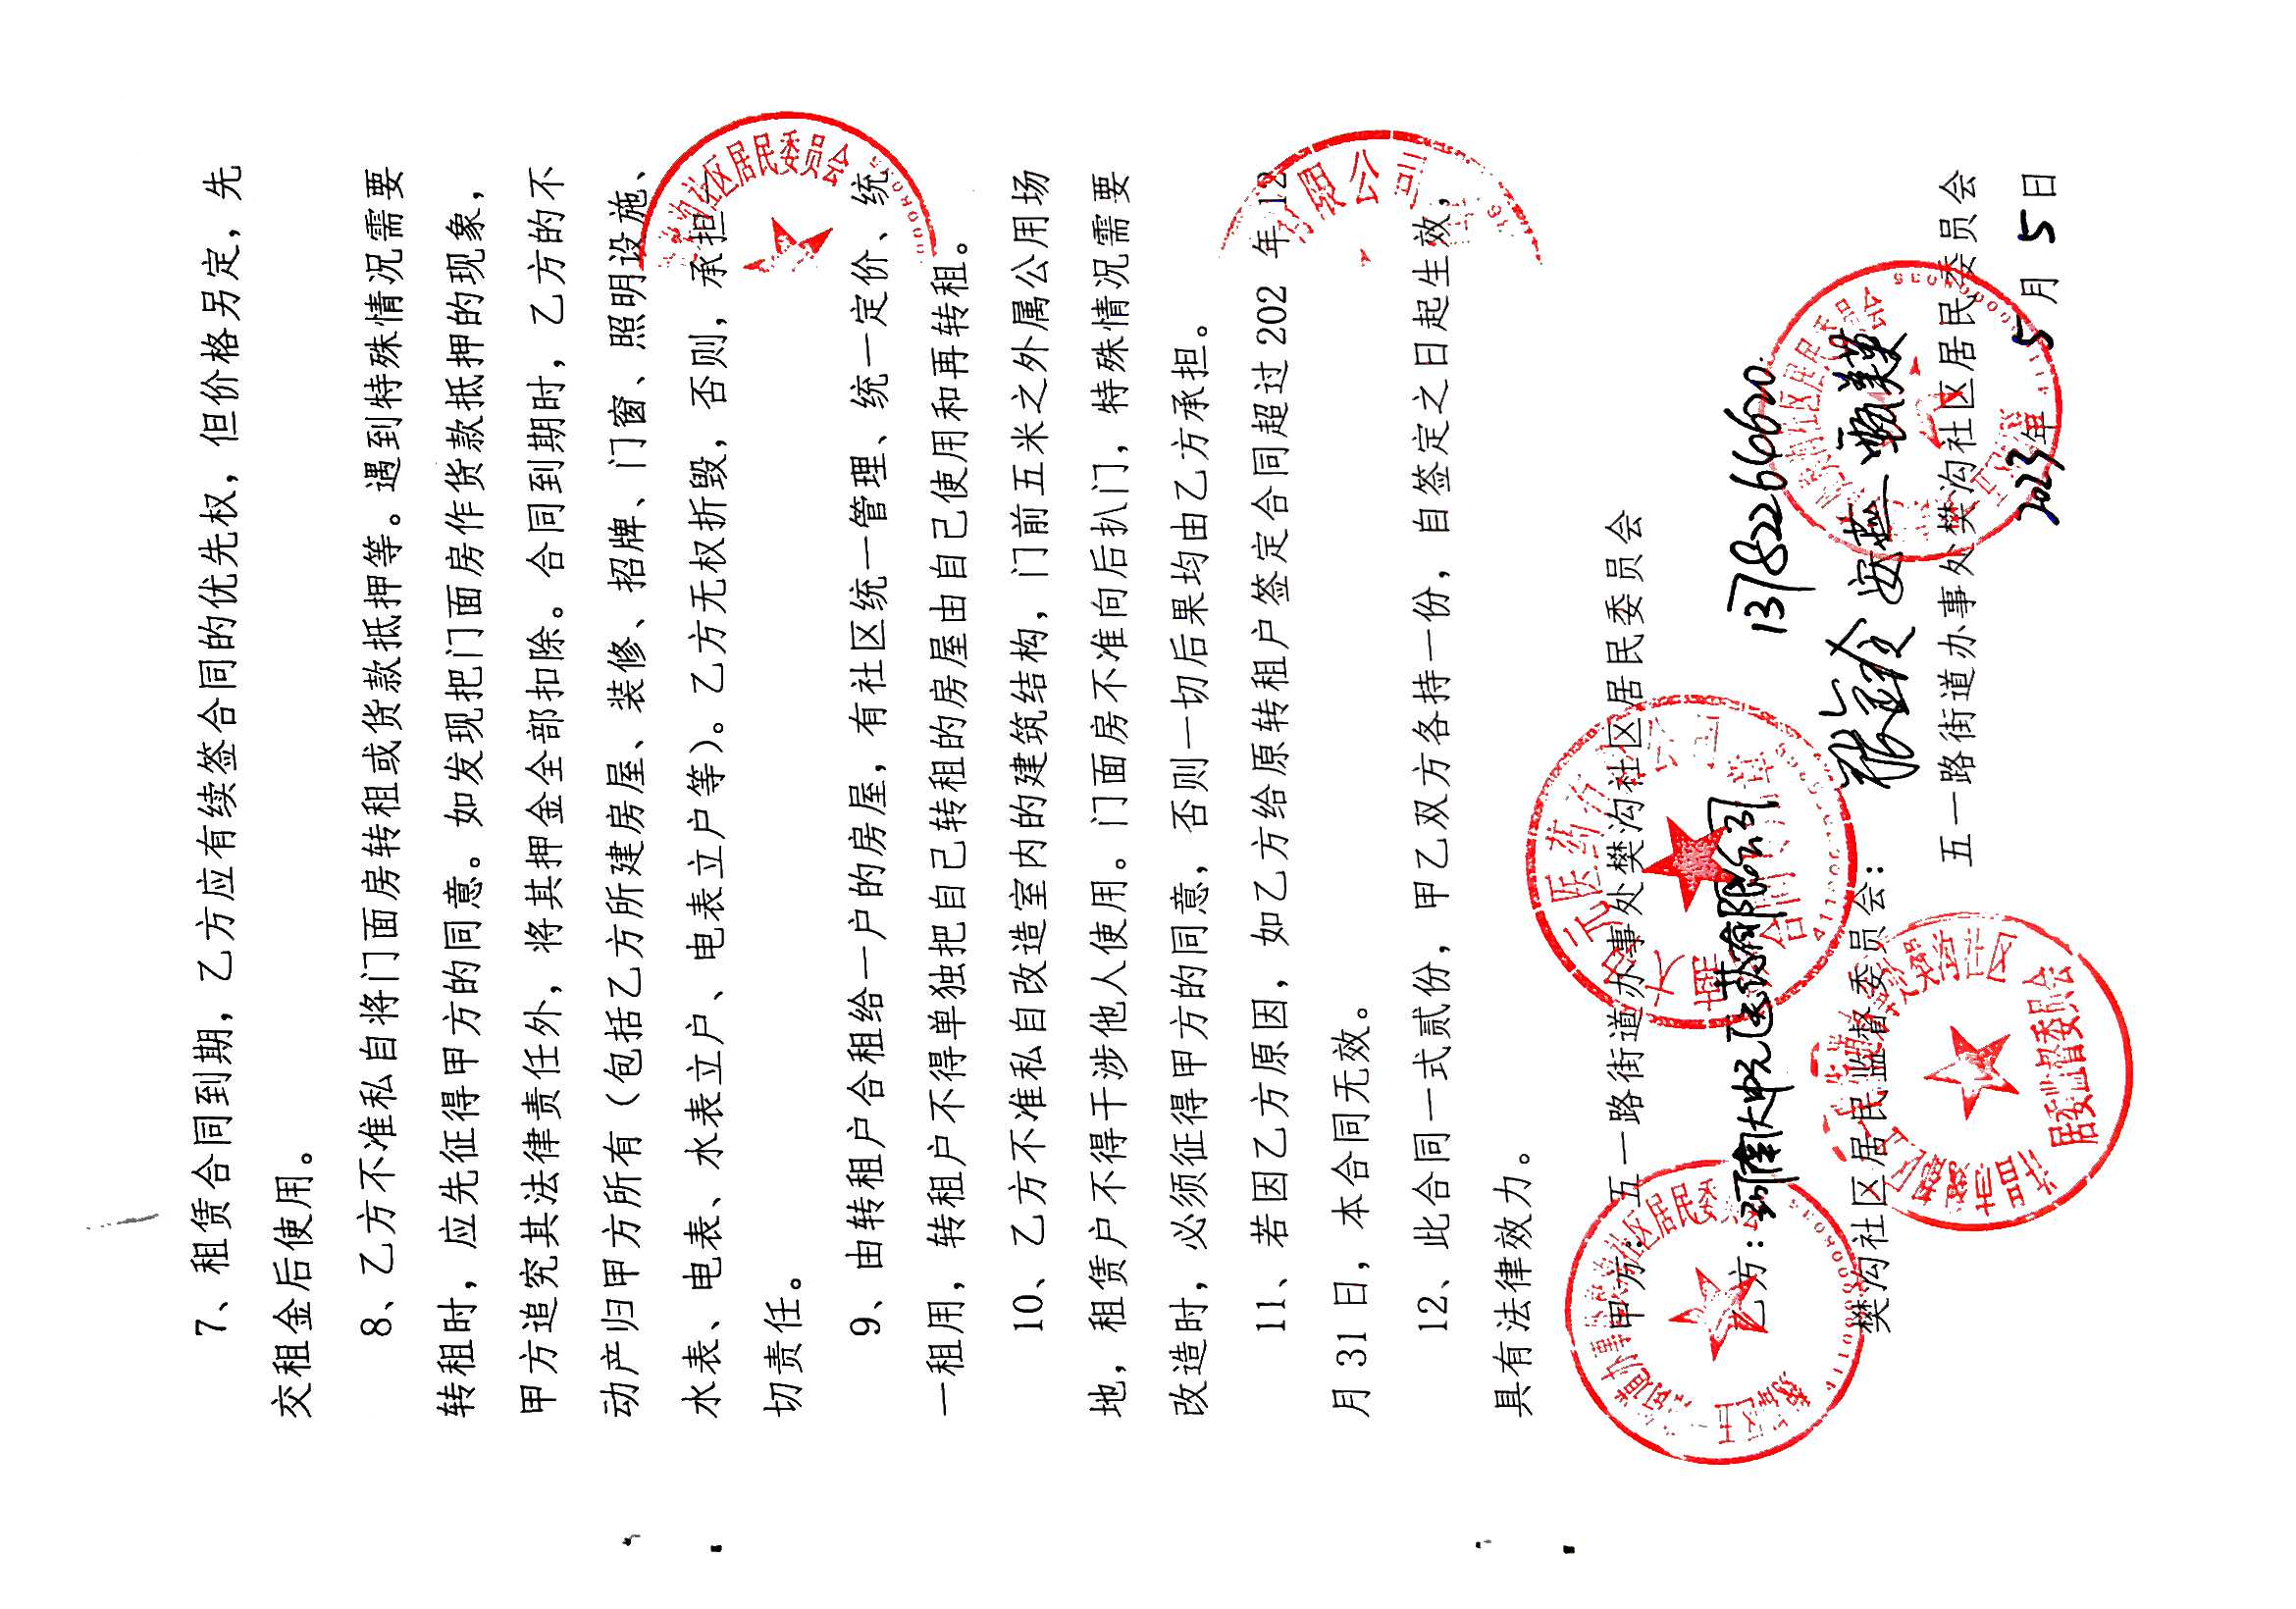 7、租赁合同到期，乙方应有续签合同的优先权，但价格另定，先
交租金后使用。
8、乙方不准私自将门面房转租或货款抵押等。遇到特殊情况需要
转租时，应先征得甲方的同意。如发现把门面房作货款抵押的现象，
甲方追究其法律责任外，将其押金全部扣除。合同到期时，乙方的不
动产归甲方所有（包括乙方所建房屋、装修、招牌、门窗、照明设施、
水表、电表、水表立户、电表立户等）。乙方无权折毁，否则，承担一
切责任。
9、由转租户合租给一户的房屋，有社区统一管理、统一定价、统
一租用，转租户不得单独把自己转租的房屋由自己使用和再转租。
10、乙方不准私自改造室内的建筑结构，门前五米之外属公用场
地，租赁户不得干涉他人使用。门面房不准向后扒门，特殊情况需要
改造时，必须征得甲方的同意，否则一切后果均由乙方承担。
11、若因乙方原因，如乙方给原转租户签定合同超过 202 年 12
月 31 日，本合同无效。
12、此合同一式贰份，甲乙双方各持一份，自签定之日起生效，
具有法律效力。
甲方：五一路街道办事处樊沟社区居民委员会
乙方：河南大中元医药有限公司 13782266620
樊沟社区居民监督委员会：
五一路街道办事处樊沟社区居民委员会
2023年 5 月 5 日
沟社区居民委员会
有限公司
社区居民委员会
元医药有限公司
合同
居委监督委员会